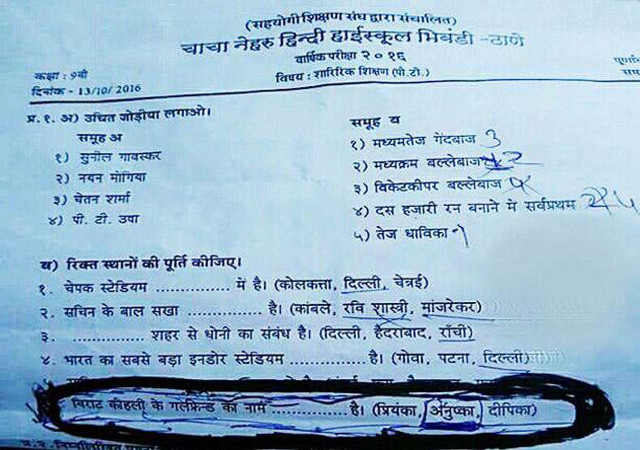 (सहयोगी शिक्षण संघ द्वारा संचालित)
चाचा नेहरु हिन्दी हाईस्कूल भिवंडी -ठाणे
वार्षिक परीक्षा २०१६
कक्षा : 9वी
विषय : शारिरिक शिक्षण (पी.टी.)
दिनांक - 13/10/ 2016
प्र.१. अ) उचित जोड़ीया लगाओ।
समूह अ
समूह व
१) सुनील गावस्कर
१) मध्यमतेज गेंदबाज 3
२) नयन मोंगिया
२) मध्यक्रम बल्लेबाज 2
३) चेतन शर्मा
३) विकेटकीपर बल्लेबाज
४) पी. टी. उषा
४) दस हज़ारी रन बनाने में सर्वप्रथम
५) तेज धाविका
ब) रिक्त स्थानों की पूर्ति कीजिए।
१. चेपक स्टेडियम .............. में है। (कोलकत्ता, दिल्ली, चेन्नई)
२. सचिन के बाल सखा .............. है। (कांबले, रवि शास्त्री, मांजरेकर)
३. .............. शहर से धोनी का संबंध है। (दिल्ली, हैदराबाद, राँची)
४. भारत का सबसे बड़ा इनडोर स्टेडियम .............. है। (गोवा, पटना, दिल्ली)
विराट कोहली के गर्लफ्रेन्ड का नाम .............. है। (प्रियंका, अनुष्का, दीपिका)